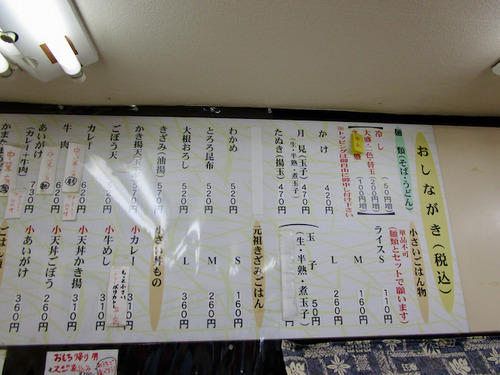 おしながき(税込)
麺類(そば・うどん)
冷し (50円増)
大盛・二色・替玉(200円増)
(100円増)
※トッピングは御自由に御申し付け下さい
かけ 420円
月見(玉子) 470円
(生・半熟
たぬき(揚玉) 470円
わかめ 520円
とろろ昆布 520円
大根おろし 520円
きざみ(油揚) 570円
かき揚天 570円
ごぼう天
カレー 620円
牛肉 620円
あいがけ
(カレー・牛肉) 730円
小さいごはん物
単品不可
(麺類とセットで願います)
ライスS 110円
M 160円
L 200円
玉子 50円
(生・半熟・煮玉子)
元祖きざみごはん
S 160円
M 260円
L 360円
小さい丼もの
小カレー 310円
小牛めし 310円
小天丼かき揚 310円
小天丼ごぼう 260円
小あいがけ 360円
おもち帰り用